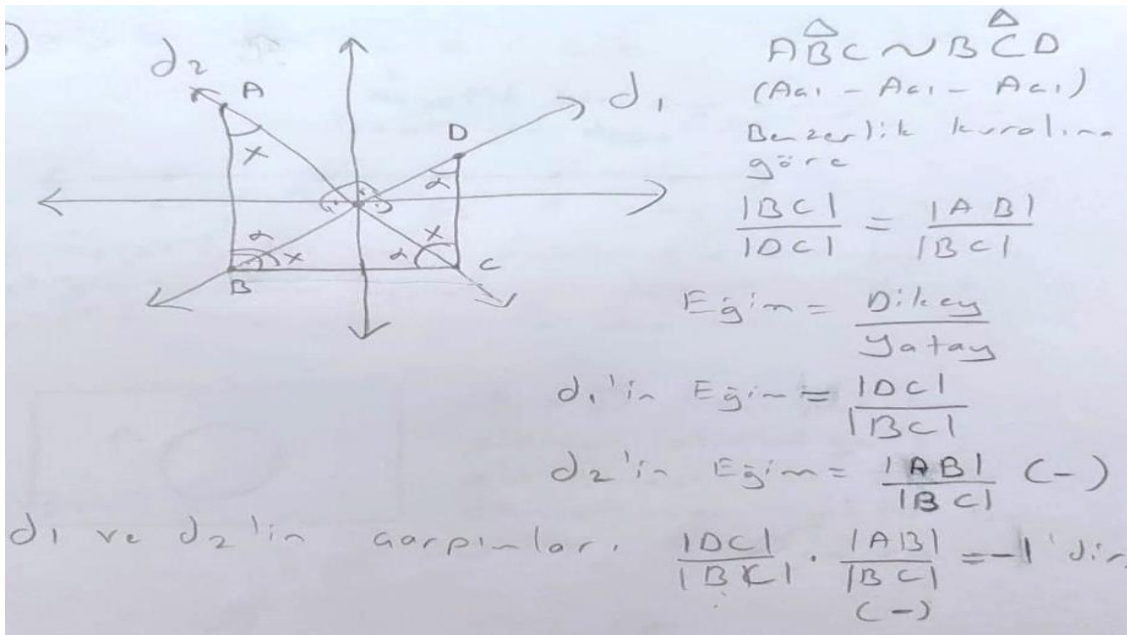 d₂
A
d₁
D
x
α
α
x
x
α
B
C
ABC ~ BCD
(Açı - Açı - Açı)
Benzerlik kuralına
göre
|BC| / |DC| = |AB| / |BC|
Eğim = Dikey / Yatay
d₁'in Eğim = |DC| / |BC|
d₂'in Eğim = |AB| / |BC| (-)
d₁ ve d₂'in çarpımları |DC| / |BC| · |AB| / |BC| = -1'dir.
(-)